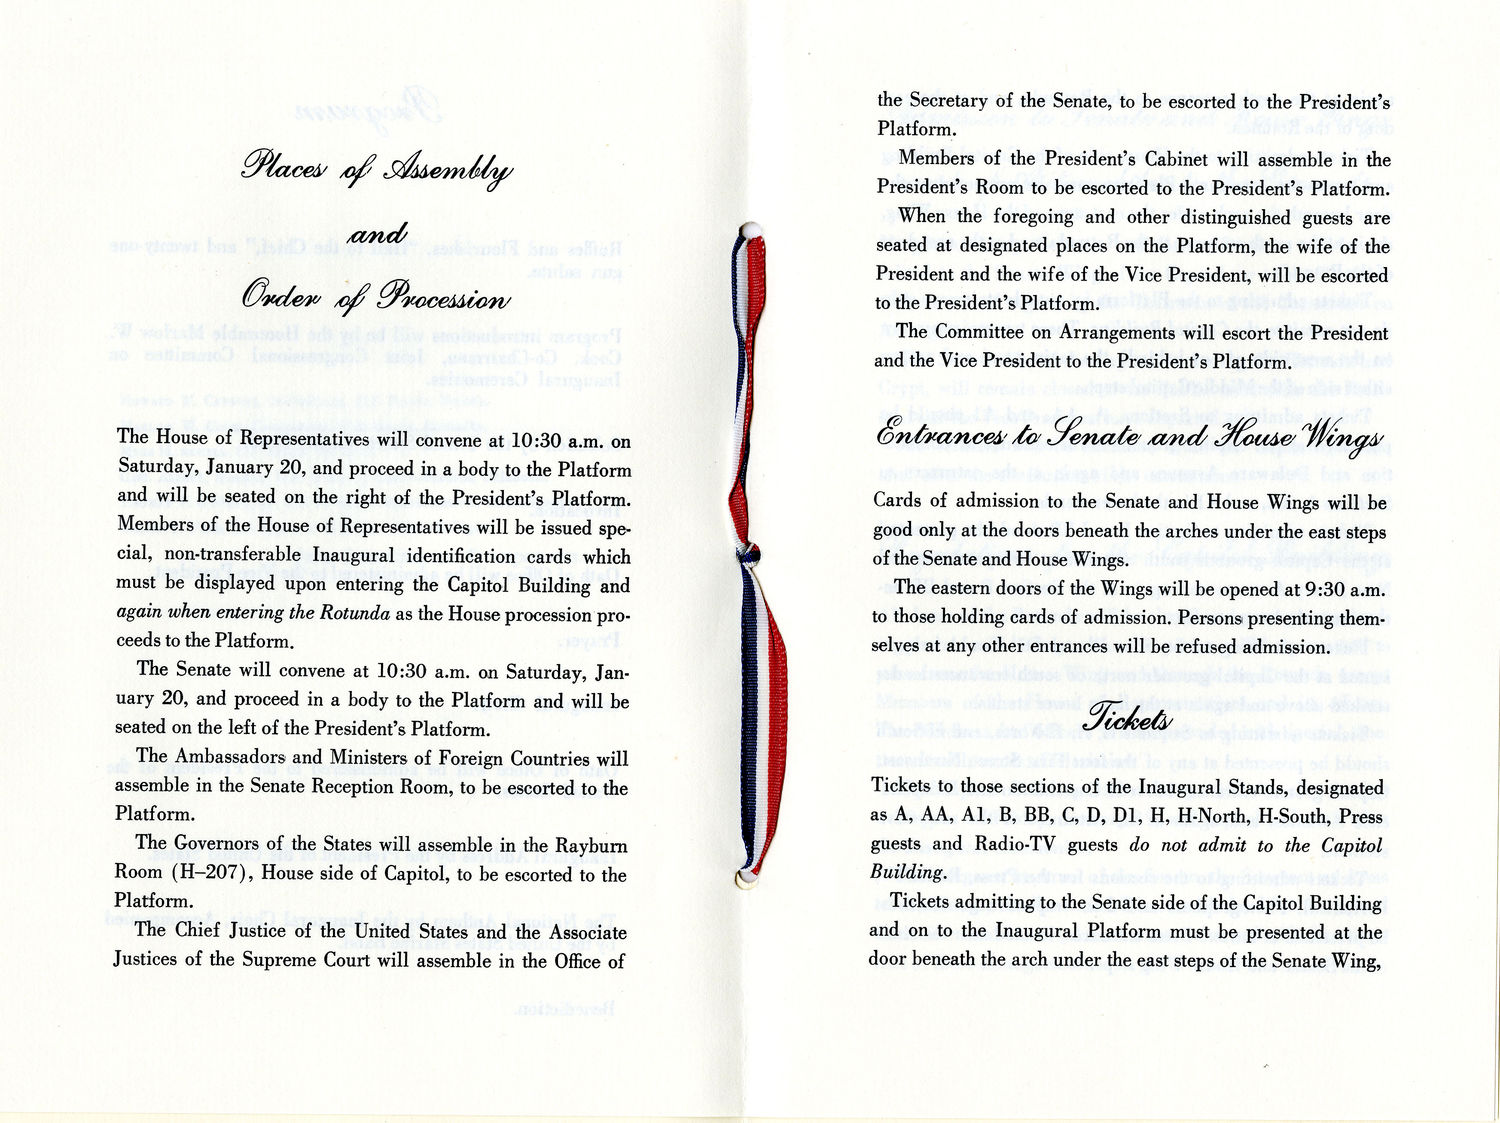 Places of Assembly
and
Order of Procession
The House of Representatives will convene at 10:30 a.m. on
Saturday, January 20, and proceed in a body to the Platform
and will be seated on the right of the President's Platform.
Members of the House of Representatives will be issued spe-
cial, non-transferable Inaugural identification cards which
must be displayed upon entering the Capitol Building and
again when entering the Rotunda as the House procession pro-
ceeds to the Platform.
The Senate will convene at 10:30 a.m. on Saturday, Jan-
uary 20, and proceed in a body to the Platform and will be
seated on the left of the President's Platform.
The Ambassadors and Ministers of Foreign Countries will
assemble in the Senate Reception Room, to be escorted to the
Platform.
The Governors of the States will assemble in the Rayburn
Room (H–207), House side of Capitol, to be escorted to the
Platform.
The Chief Justice of the United States and the Associate
Justices of the Supreme Court will assemble in the Office of
the Secretary of the Senate, to be escorted to the President's
Platform.
Members of the President's Cabinet will assemble in the
President's Room to be escorted to the President's Platform.
When the foregoing and other distinguished guests are
seated at designated places on the Platform, the wife of the
President and the wife of the Vice President, will be escorted
to the President's Platform.
The Committee on Arrangements will escort the President
and the Vice President to the President's Platform.
Entrances to Senate and House Wings
Cards of admission to the Senate and House Wings will be
good only at the doors beneath the arches under the east steps
of the Senate and House Wings.
The eastern doors of the Wings will be opened at 9:30 a.m.
to those holding cards of admission. Persons presenting them-
selves at any other entrances will be refused admission.
Tickets
Tickets to those sections of the Inaugural Stands, designated
as A, AA, A1, B, BB, C, D, D1, H, H-North, H-South, Press
guests and Radio-TV guests do not admit to the Capitol
Building.
Tickets admitting to the Senate side of the Capitol Building
and on to the Inaugural Platform must be presented at the
door beneath the arch under the east steps of the Senate Wing,